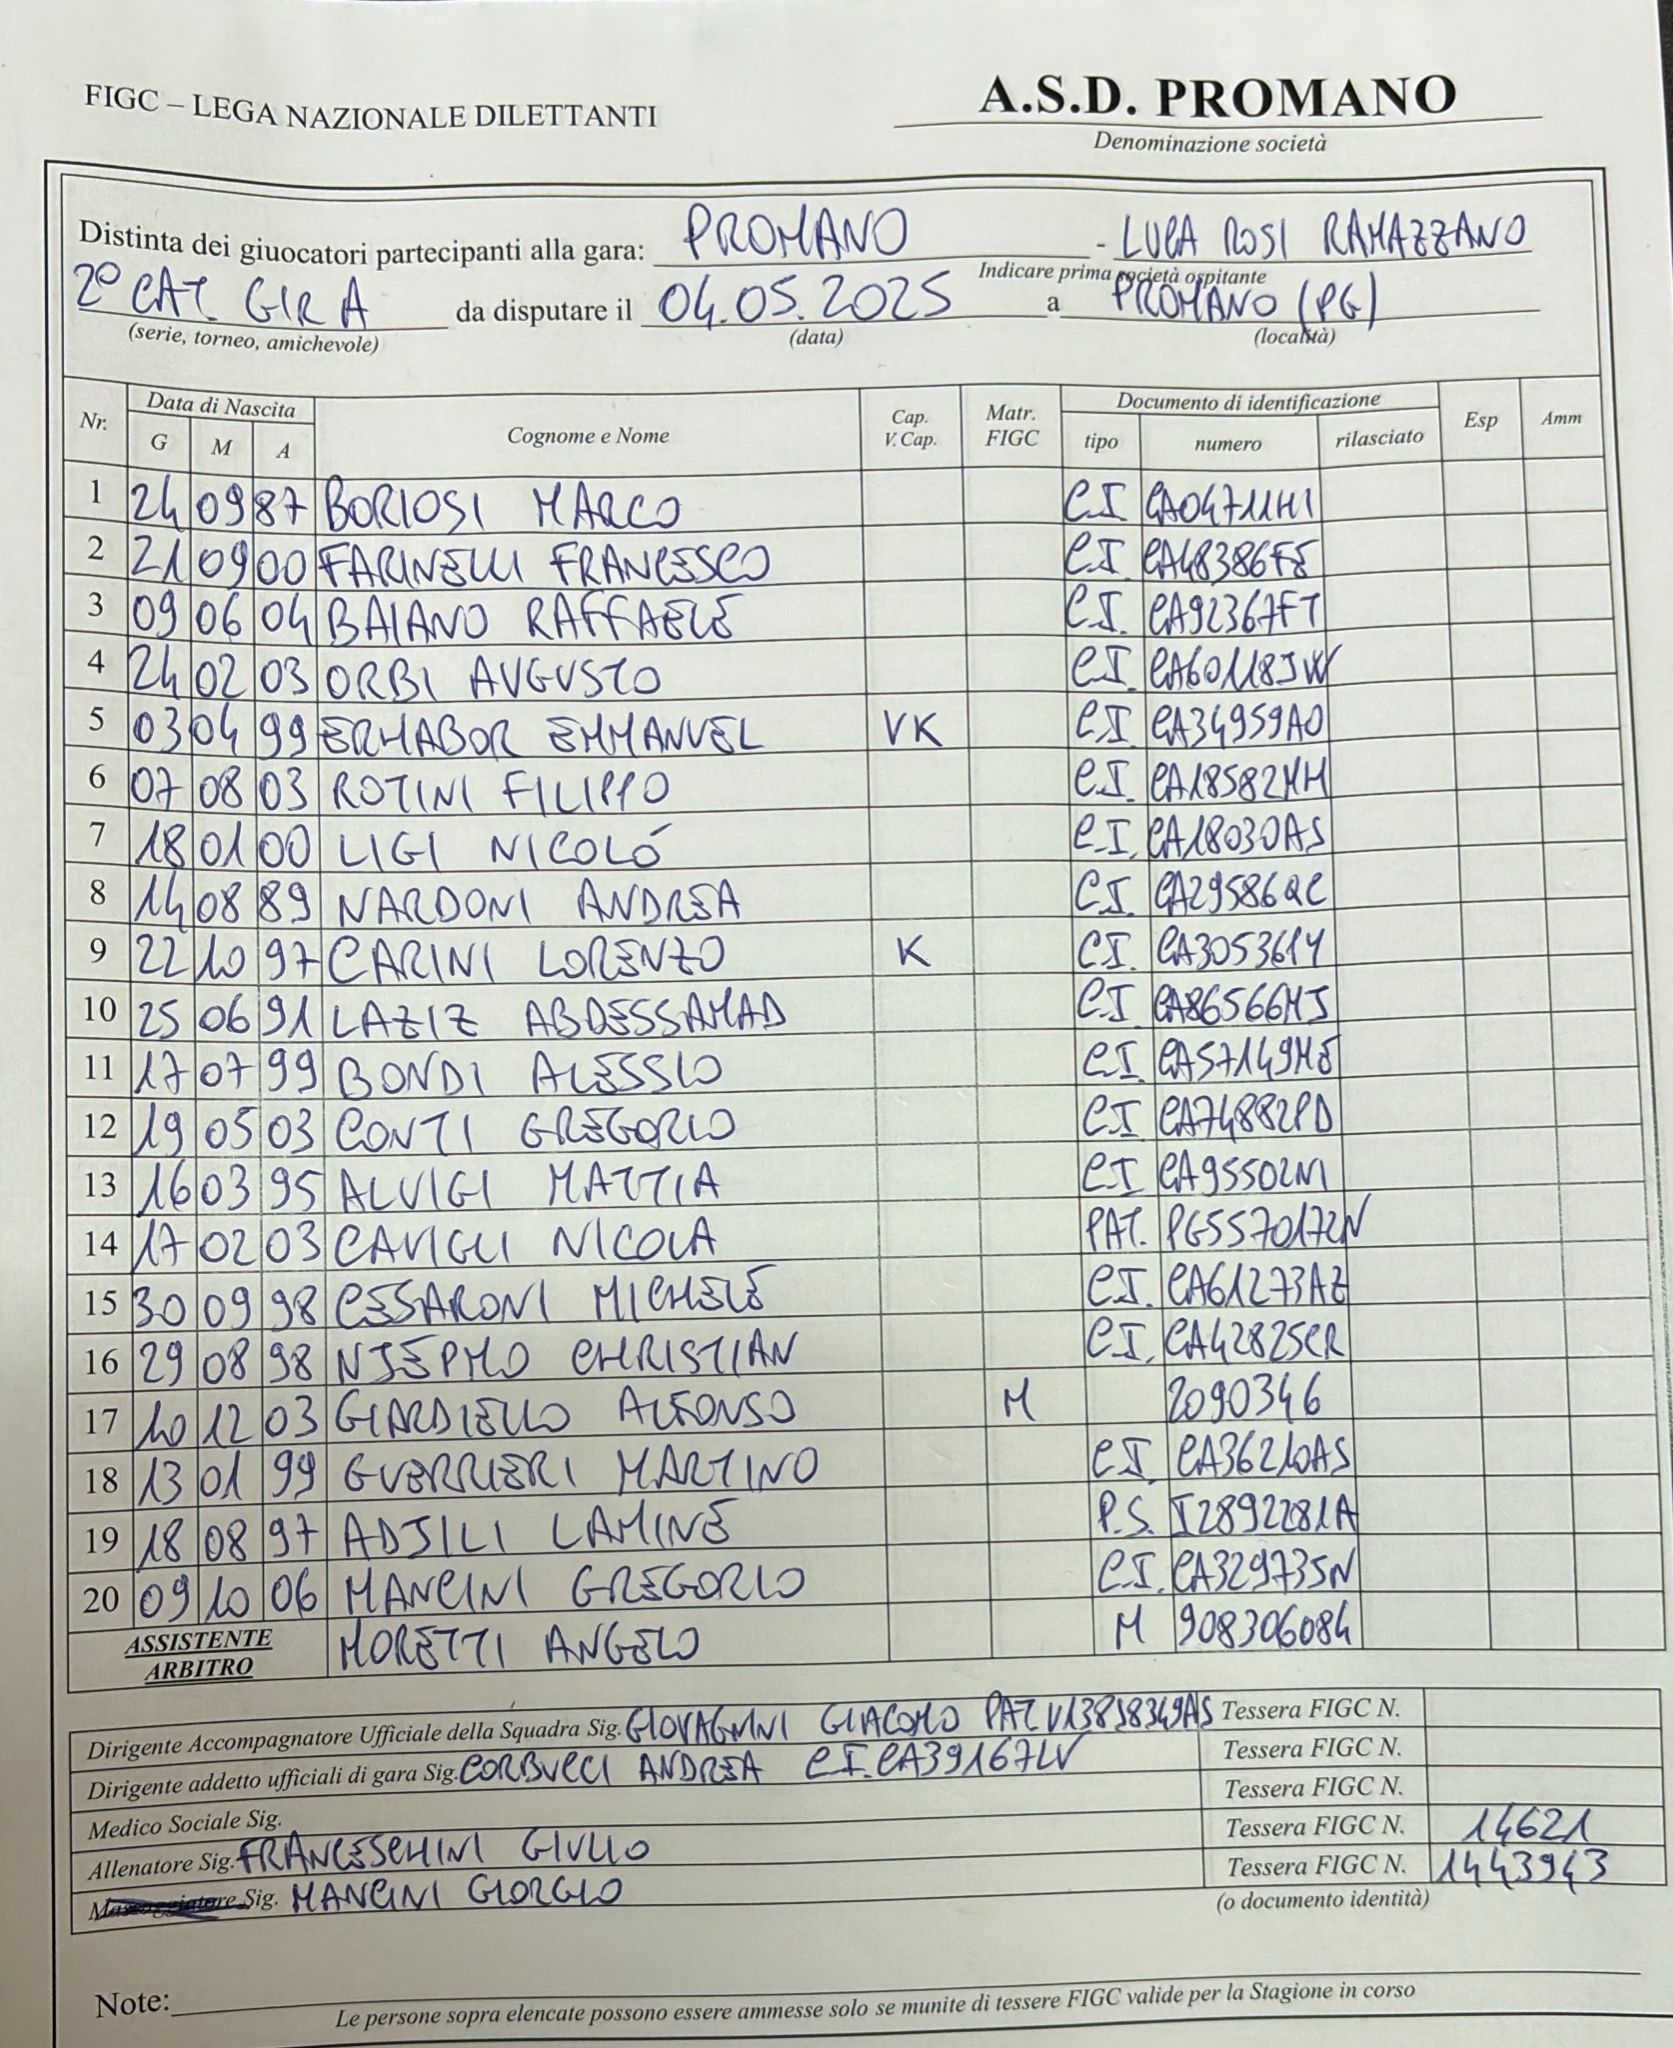 FIGC – LEGA NAZIONALE DILETTANTI
A.S.D. PROMANO
Denominazione società
Distinta dei giuocatori partecipanti alla gara: PROMANO - LUCA ROSI RAMAZZANO
Indicare prima società ospitante
2° CAT. GIR A da disputare il 04.05.2025 a PROMANO (PG)
(serie, torneo, amichevole) (data) (località)
Nr. Data di Nascita Cognome e Nome Cap. V. Cap. Matr. FIGC Documento di identificazione Esp Amm
G M A tipo numero rilasciato
1 24 09 87 BORIOSI MARCO C.I. CA04711HI
2 21 09 00 FARINELLI FRANCESCO C.I. CA48386FE
3 09 06 04 BAIANO RAFFAELE C.I. CA92367FT
4 24 02 03 ORBI AUGUSTO C.I. CA60118JW
5 03 04 99 ERHABOR EMMANUEL VK C.I. CA34959AO
6 07 08 03 ROTINI FILIPPO C.I. CA18582MH
7 18 01 00 LIGI NICOLÓ C.I. CA18030AS
8 14 08 89 NARDONI ANDREA C.I. CA29586QC
9 22 10 97 CARINI LORENZO K C.I. CA30536IY
10 25 06 91 LAZIZ ABDESSAMAD C.I. CA86566MJ
11 17 07 99 BONDI ALESSIO C.I. CA57149ME
12 19 05 03 CONTI GREGORIO C.I. CA74882PD
13 16 03 95 ALVIGI MATTIA C.I. CA95502NI
14 17 02 03 CAVIGLI NICOLA PAT. PG5570172N
15 30 09 98 CESARONI MICHELE C.I. CA61273AZ
16 29 08 98 NJEPMO CHRISTIAN C.I. CA42825CR
17 10 12 03 GIARDIELLO ALFONSO M 2090346
18 13 01 99 GUERRIERI MARTINO C.I. CA36210AS
19 18 08 97 ADJILI LAMINE P.S. I2892281A
20 09 10 06 MANCINI GREGORIO C.I. CA32973SN
ASSISTENTE ARBITRO MORETTI ANGELO M 908306084
Dirigente Accompagnatore Ufficiale della Squadra Sig. GIOVAGNINI GIACOMO PAT Tessera FIGC N.
Dirigente addetto ufficiali di gara Sig. CORBUCCI ANDREA C.I. CA39167LV Tessera FIGC N.
Medico Sociale Sig. Tessera FIGC N.
Allenatore Sig. FRANCESCHINI GIULIO Tessera FIGC N. 14621
Massaggiatore Sig. MANCINI GIORGIO Tessera FIGC N. 1443943
(o documento identità)
Note:
Le persone sopra elencate possono essere ammesse solo se munite di tessere FIGC valide per la Stagione in corso